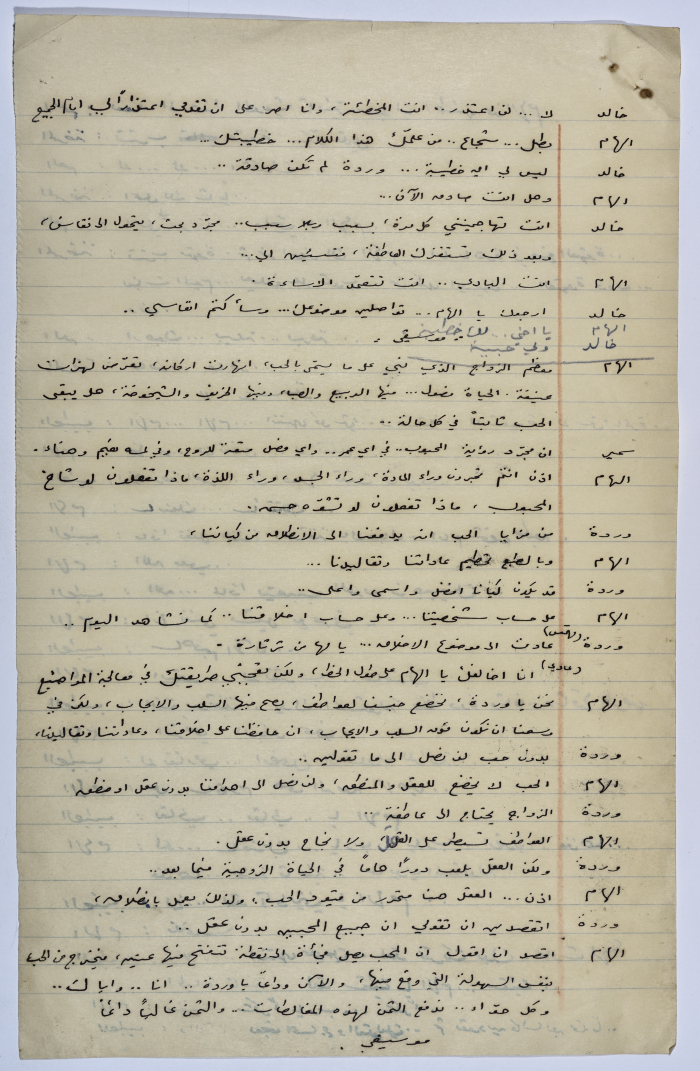 خالد لا... لن اعتذر.. انت المخطئة، وانا اصر على ان تقدمي اعتذاراً لي امام الجميع
الهام بطل... شجاع.. من علمك هذا الكلام... خطيبتك..
خالد ليس لي اي خطيبة... وردة لم تكن صادقة..
الهام وهل انت صادق الآن...
خالد انت تهاجمينني كل مرة، بسبب وبلا سبب.. مجرد بحث، يتحول الى نقاش،
وبعد ذلك تستفزك العاطفة، فتسيئين الي...
الهام انت البادي.. انت تتعمد الاساءة.
خالد ارجوك يا الهام... تواصلين موضوعك... وسأكتم انفاسي..
الهام يا اخي..
خالد موسيقى.
الهام معظم الزواج الذي بني على ما يسمى بالحب، انهارت اركانه، تعرض لهزات
عنيفة. الحياة فصول... منها الربيع والصبا، ومنها الخريف والشيخوخة، هل يبقى
الحب ثابتاً في كل حالة..
سمير ان مجرد رؤية المحبوب.. في اي عمر.. واي فصل متعة للروح، وفي لمسه نعيم وهناء.
الهام اذن انتم تجرون وراء المادة، وراء الجسد، وراء اللذة، ماذا تفعلون لو شاخ
المحبوب، ماذا تفعلون لو تشوه جسمه.
وردة من مزايا الحب انه يدفعنا الى الانطلاق من كياننا،
الهام وبالطبع تحطيم عاداتنا وتقاليدنا...
وردة قد يكون كياناً افضل واسمى واعلى..
الهام على حساب شخصيتنا... وعلى حساب اخلاقنا.. كما نشاهد اليوم..
وردة عادت الى موضوع الاخلاق... يا لها من ثرثارة.
(عادي) انا اخالفك يا الهام على طول الخط، ولكن تعجبني طريقتك في معالجة المواضيع
الهام نحن يا وردة، نخضع حبنا لعواطف، يصح فيها السلب والايجاب، ولكن في
وسعنا ان نكون فوق السلب والايجاب، ان حافظنا على اخلاقنا، وعاداتنا وتقاليدنا،
وردة بدون حب لن نصل الى ما تقولين..
الهام الحب لا يخضع للعقل والمنطق، ولن نصل الى اهدافنا بدون عقل او منطق
وردة الزواج يحتاج الى عاطفة..
الهام العواطف تسيطر على العقل، ولا نجاح بدون عقل.
وردة ولكن العقل يلعب دوراً هاماً في الحياة الزوجية فيما بعد..
الهام اذن... العقل هنا متحرر من قيود الحب، ولذلك يعمل بانطلاق،
وردة اتقصدين ان تقولي ان جميع المحبين بدون عقل..
الهام اقصد ان اقول ان المحب يصل فجأة الى نقطة تتفتح فيها عينيه، فيخرج من الحب
بنفس السهولة التي وقع فيها، والآن وداعاً يا وردة.. انا.. واياك..
وكل حواء.. ندفع الثمن لهذه المغالطات... والثمن غالباً دائماً
موسيقى.